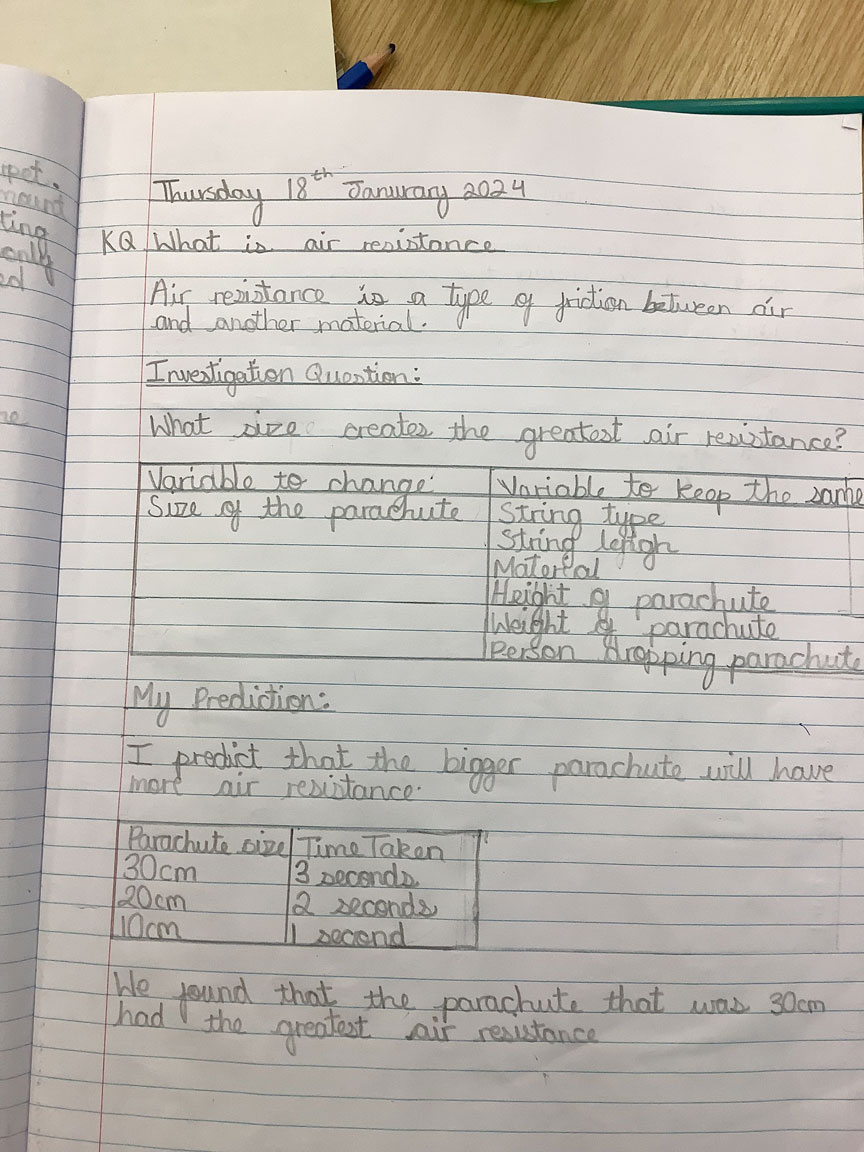 upet.
mount
ting
only
ed
Thursday 18th Janurary 2024
KQ What is air resistance
Air resistance is a type of friction between air
and another material.
Investigation Question:
What size creates the greatest air resistance?
Variable to change
Size of the parachute
Variable to keep the same
String type
String lengh
Material
Height of parachute
Weight of parachute
Person dropping parachute
My Prediction:
I predict that the bigger parachute will have
more air resistance.
Parachute size Time Taken
30cm 3 seconds
20cm 2 seconds
10cm 1 second
We found that the parachute that was 30cm
had the greatest air resistance